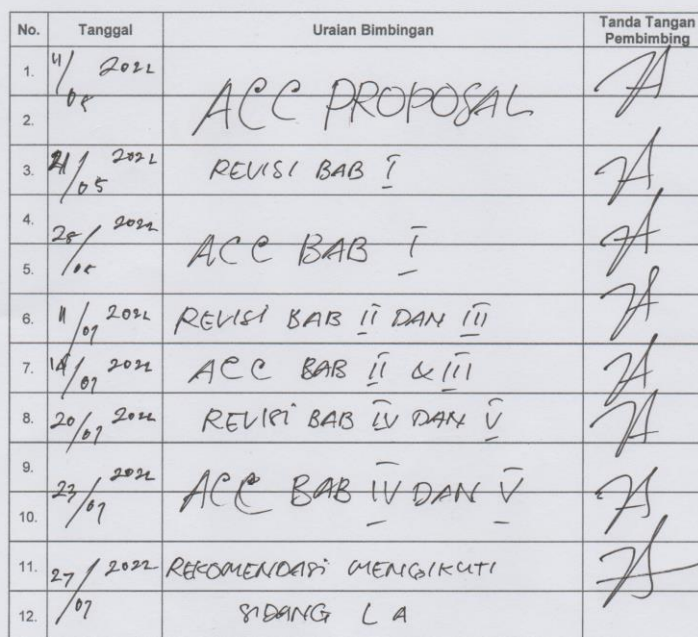 No. Tanggal Uraian Bimbingan Tanda Tangan Pembimbing
1. 11/05 2022 ACC PROPOSAL
2.
3. 21/05 2022 REVISI BAB I
4. 28/05 2022 ACC BAB I
5.
6. 11/07 2022 REVISI BAB II DAN III
7. 14/07 2022 ACC BAB II & III
8. 20/07 2022 REVISI BAB IV DAN V
9. 23/07 2022 ACC BAB IV DAN V
10.
11. 27/07 2022 REKOMENDASI MENGIKUTI
12. SIDANG LA